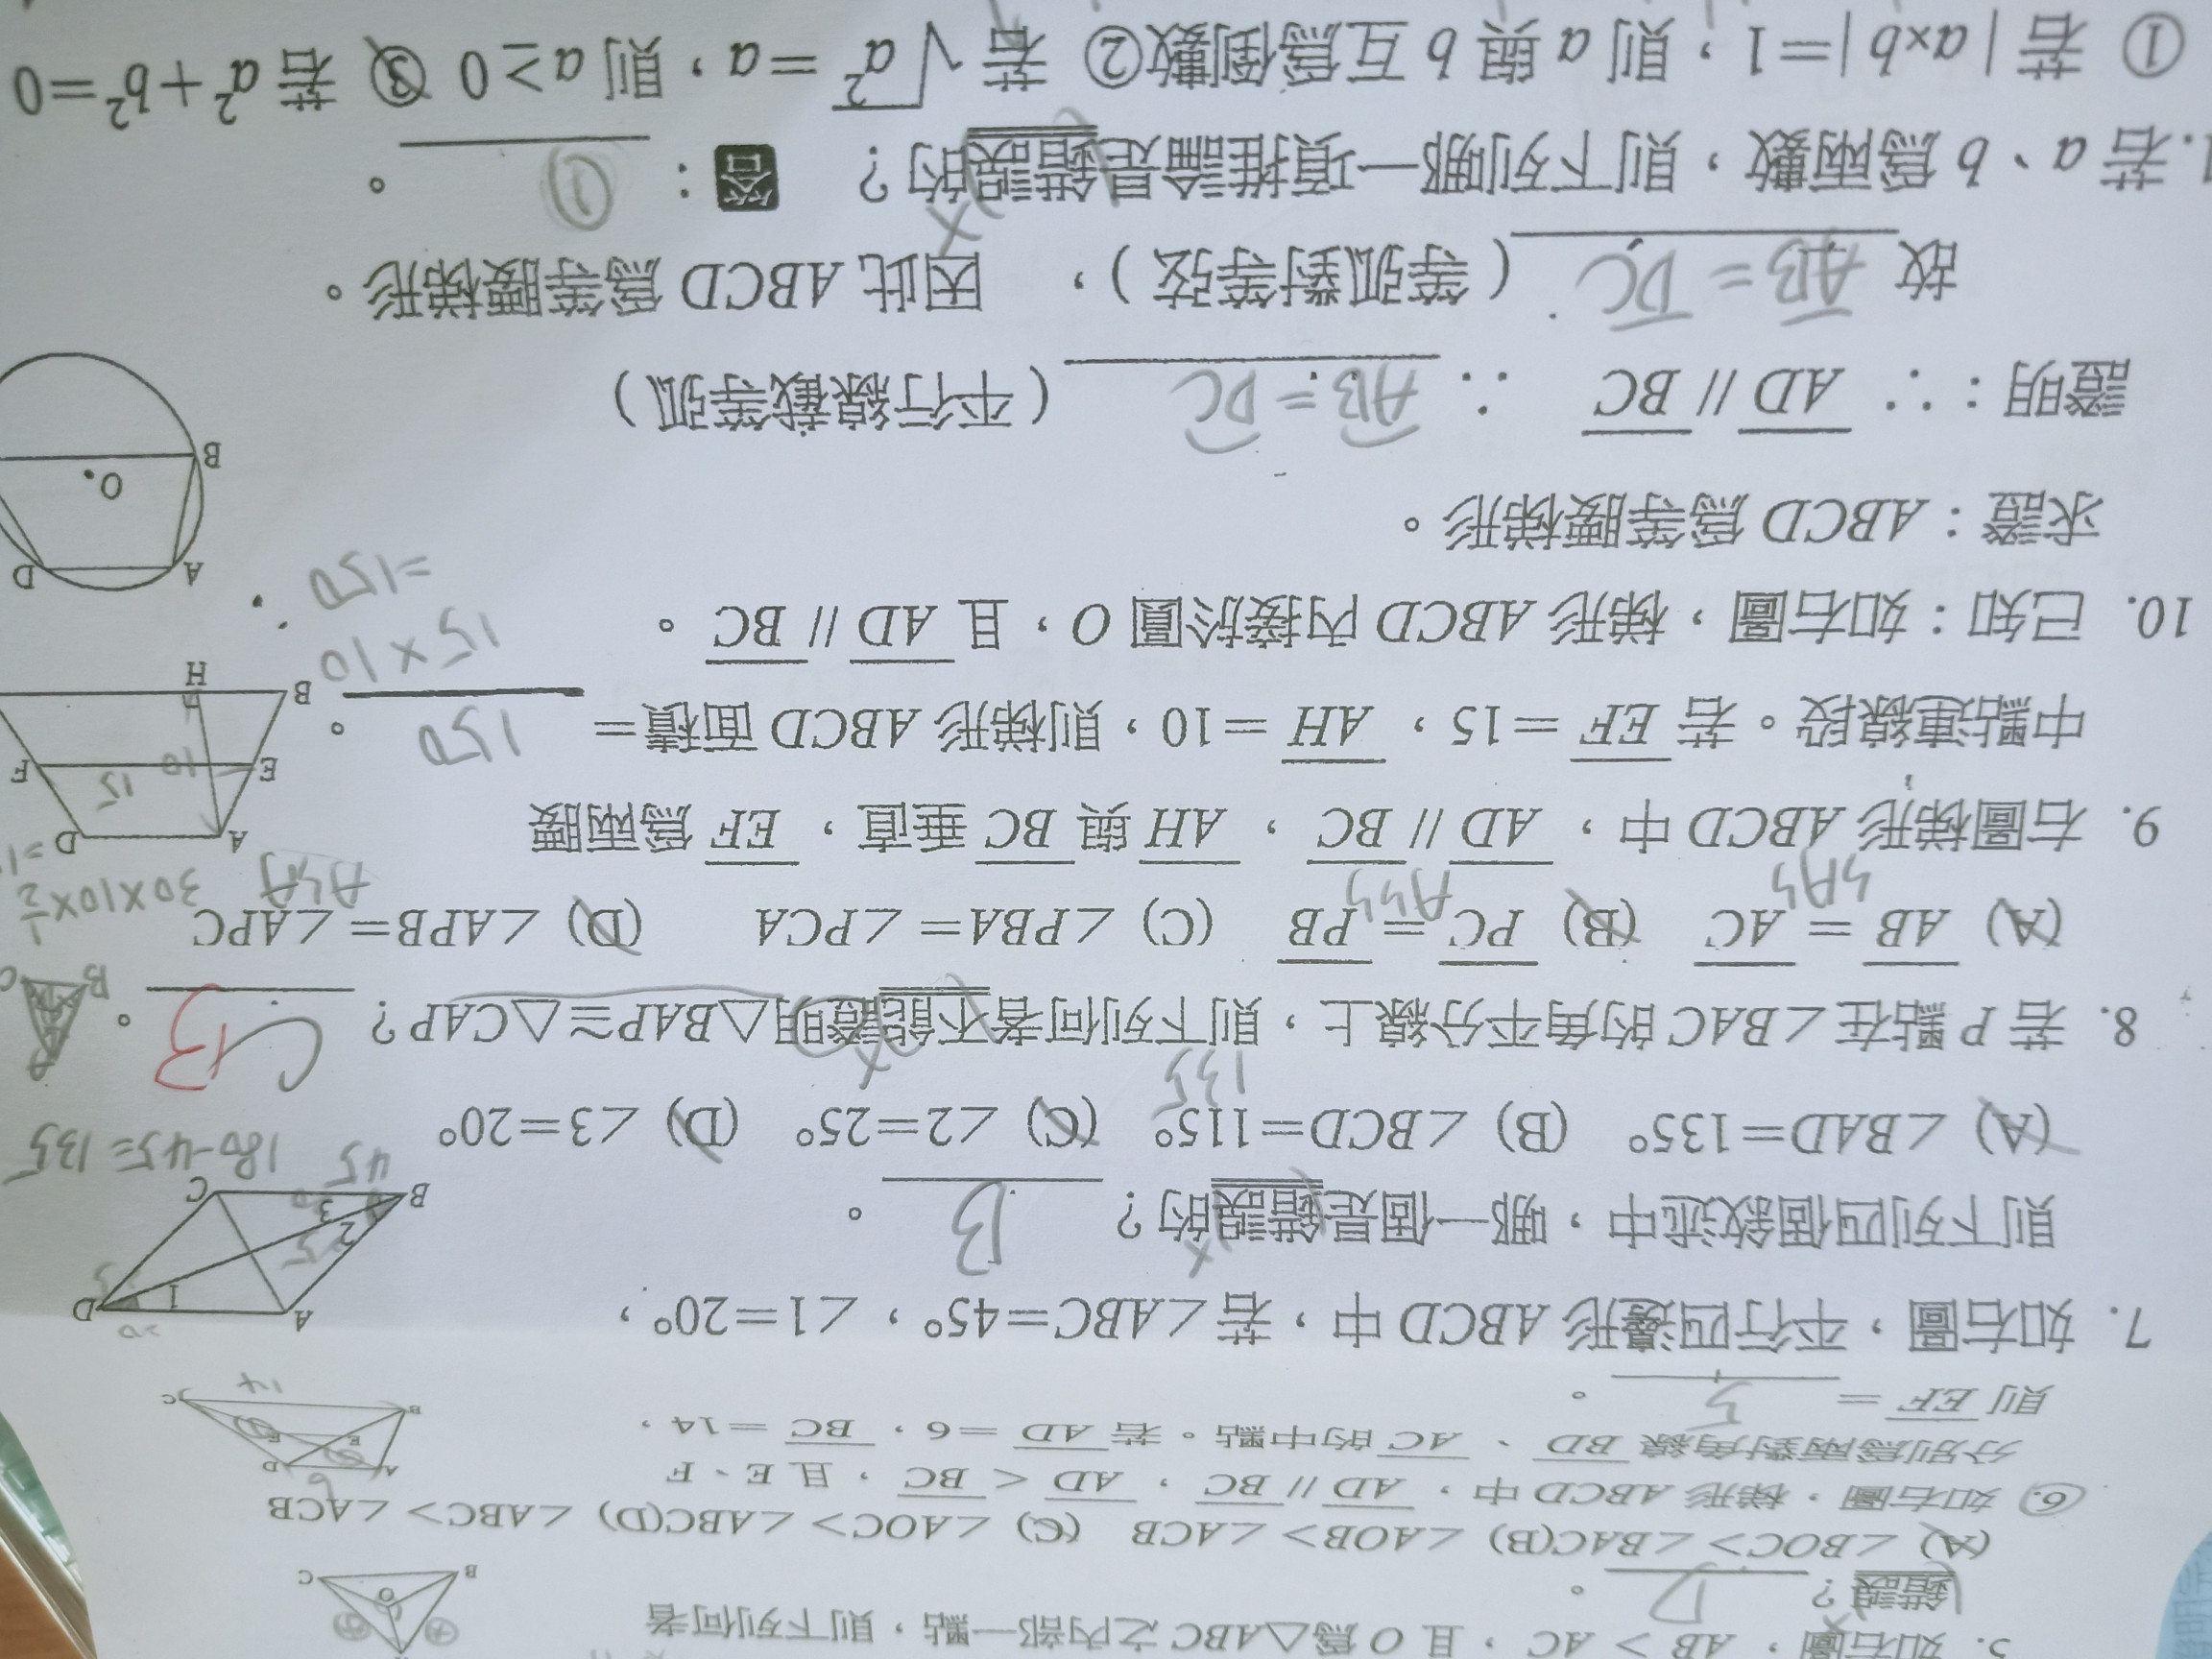 5. 如右圖，AB > AC，且 O 為△ABC 之內部一點，則下列何者
錯誤？ D 。
(A) ∠BOC> ∠BAC(B) ∠AOB> ∠ACB (C) ∠AOC> ∠ABC(D) ∠ABC> ∠ACB
B O C
6. 如右圖，梯形 ABCD 中，AD // BC，AD < BC，且 E、F
分別為兩對角線 BD、AC 的中點。若 AD =6，BC =14，
則 EF = 5 。
A D E F B C 6 14
7. 如右圖，平行四邊形 ABCD 中，若∠ABC=45°，∠1=20°，
則下列四個敘述中，哪一個是錯誤的？ B 。
A D 1 2 3 B C 45
180-45=135
(A) ∠BAD=135° (B) ∠BCD=115° (C) ∠2=25° (D) ∠3=20°
135
8. 若 P 點在∠BAC 的角平分線上，則下列何者不能證明△BAP≅△CAP？ C B 。
A B C
(A) AB = AC (B) PC = PB (C) ∠PBA= ∠PCA (D) ∠APB= ∠APC
SAS ASS ASA 30×10×1/2
9. 右圖梯形 ABCD 中，AD // BC，AH 與 BC 垂直，EF 為兩腰
中點連線段。若 EF =15，AH =10，則梯形 ABCD 面積= 150 。
A D E F B H 15 10
15×10
=150
10. 已知：如右圖，梯形 ABCD 內接於圓 O，且 AD // BC。
求證：ABCD 為等腰梯形。
A D O B
證明：∵ AD // BC ∴ AB = DC （平行線截等弧）
故 AB = DC （等弧對等弦）， 因此 ABCD 為等腰梯形。
1.若 a、b 為兩數，則下列哪一項推論是錯誤的？ 答： ① 。
① 若 | a×b |=1，則 a 與 b 互為倒數② 若 √a² =a，則 a≥0 ③ 若 a²+b²=0